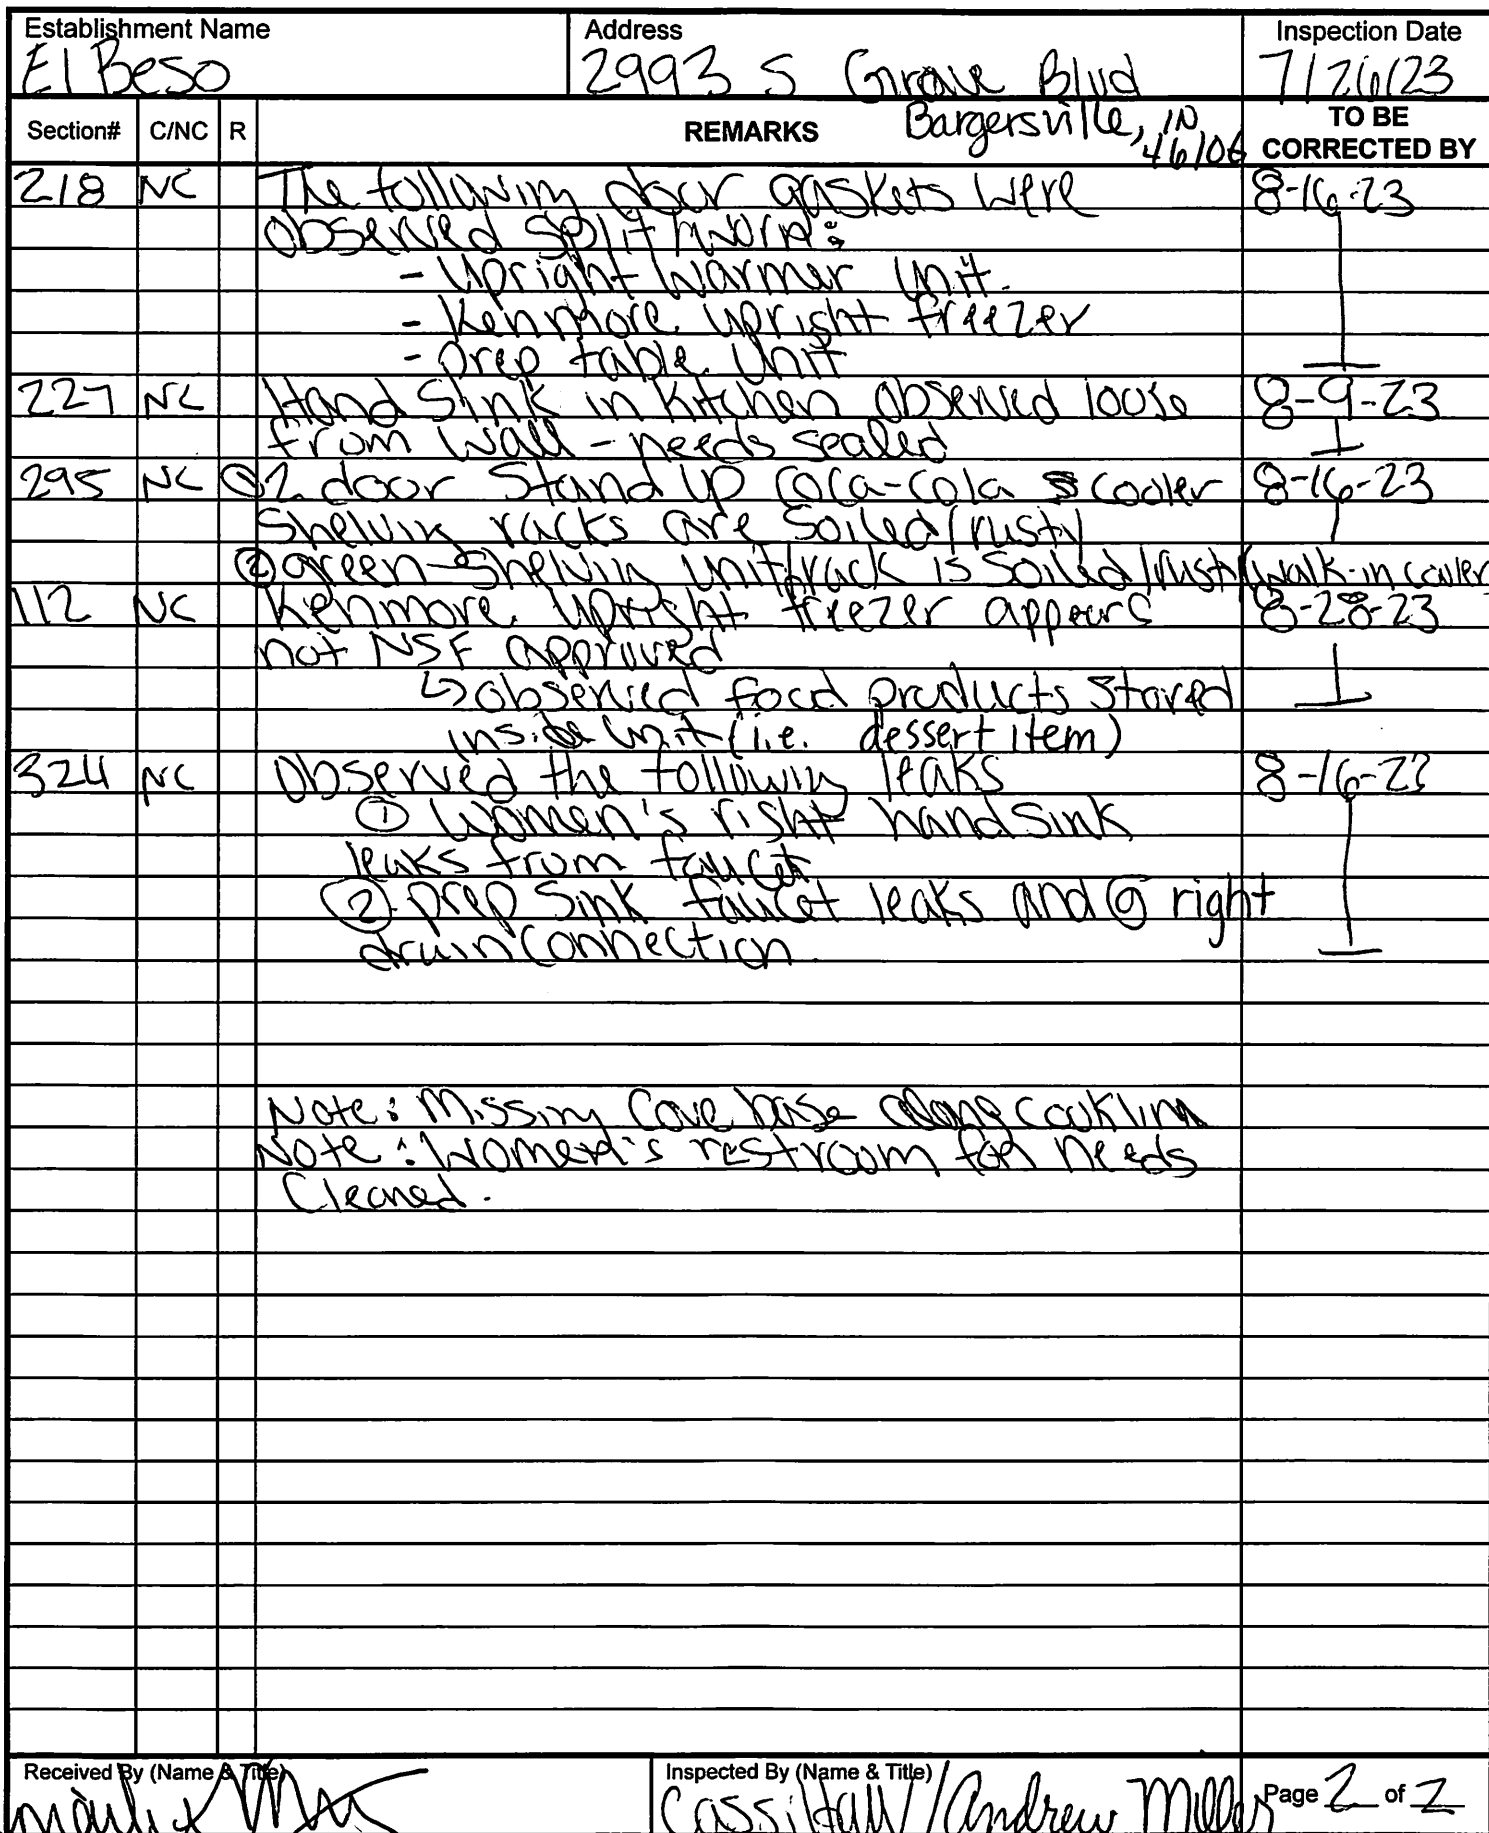 Establishment Name Address Inspection Date
El Beso 2993 S Grove Blvd 7/26/23
Section# C/NC R REMARKS Bargersville, IN 46106 TO BE CORRECTED BY
218 NC The following door gaskets were 8-16-23
observed split/worn:
- Upright warmer unit.
- Kenmore upright freezer
- Prep table unit
227 NC Hand Sink in kitchen observed loose 8-9-23
from wall - needs sealed
295 NC ① 2 door Stand up Coca-Cola cooler 8-16-23
Shelvin racks are soiled/rusty
② green shelvin unit/rack is soiled/rusty (walk-in cooler
112 NC Kenmore upright freezer appears 8-28-23
not NSF approved
↳ observed food products stored
inside unit (i.e. dessert item)
324 NC Observed the following leaks 8-16-23
① Women's right hand Sink
leaks from faucet
② prep Sink faucet leaks and @ right
drain connection.
Note: Missing Cove base along cookline
Note: Women's restroom fan needs
Cleaned.
Received By (Name & Title) Inspected By (Name & Title)
Cassi Hall / Andrew Miller Page 2 of 2